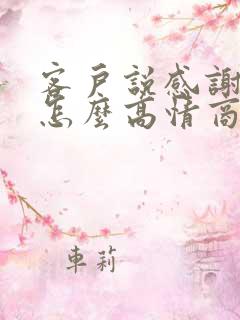 客戶説感謝
怎麽高情商
車莉